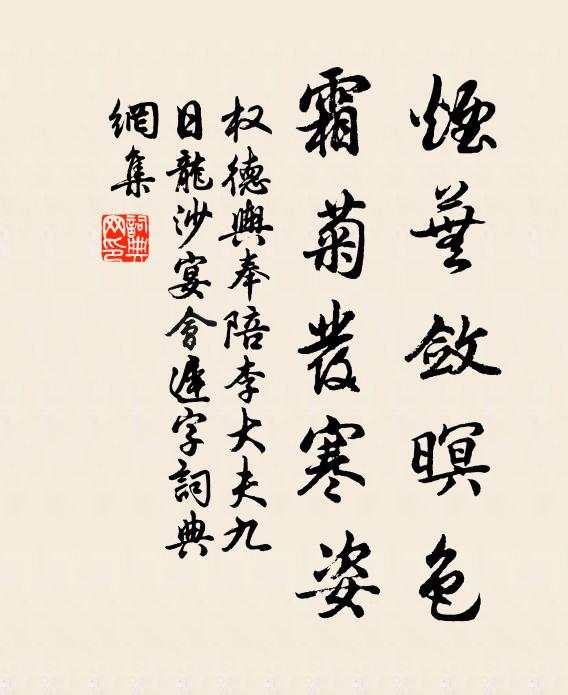 煙蕪斂暝色
霜菊發寒姿
权德輿奉陪李大夫九
日龍沙宴會遲字詞典
網集
詞典网印